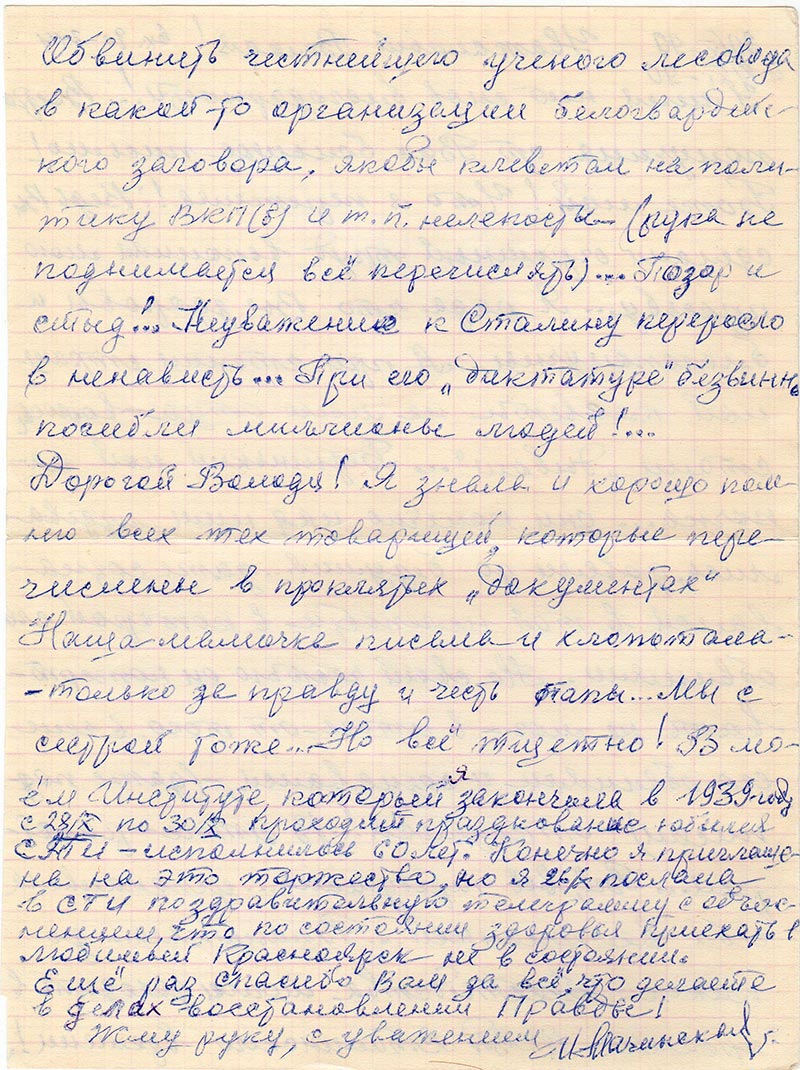 Обвинить честнейшего ученого лесовода
в какой-то организации белогвардейс-
кого заговора, якобы клеветал на поли-
тику ВКП(б) и т.п. нелепость (рука не
поднимается всё перечислять)... Позор и
стыд!.. Неуважение к Сталину переросло
в ненависть... При его „диктатуре“ безвинно
погибли мильионы людей!...
Дорогой Володя! Я знала и хорошо пом-
ню всех тех товарищей, которые пере-
числены в проклятых „документах“
Наша мамочка писала и хлопотала-
-только за правду и честь папы... Мы с
сестрой тоже... Но всё тщетно! В мо-
ём Институте, который я закончила в 1939 году
с 28/X по 30/X проходил празднование юбилея
СТИ – исполнилось 60 лет. Конечно я приглаше-
на на это торжество, но я послала
в СТИ поздравительную телеграмму с объяс-
нением, что по состоянии здоровья приехать в
любимый Красноярск не в состоянии.
Ещё раз спасибо Вам за всё, что делаете
в делах восстановлении Правды!
Жму руку, с уважением